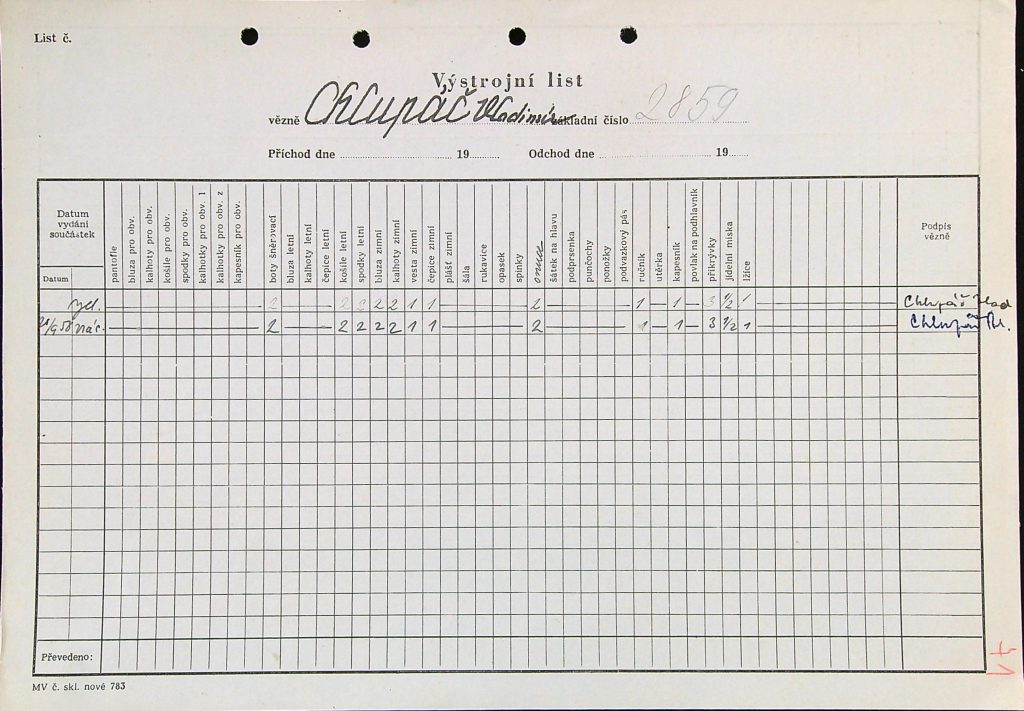 List č.
Výstrojní list
vězně Chlupáč Vladimír základní číslo 2859
Příchod dne 19 Odchod dne 19
Datum vydání součástek
Datum
pantofle
bluza pro obv.
kalhoty pro obv.
košile pro obv.
spodky pro obv.
kalhotky pro obv. 1
kalhotky pro obv. 2
kapesník pro obv.
boty šněrovací
bluza letní
kalhoty letní
čepice letní
košile letní
spodky letní
bluza zimní
kalhoty zimní
vesta zimní
čepice zimní
plášť zimní
šála
rukavice
opasek
spinky
onuce
šátek na hlavu
podprsenka
punčochy
ponožky
podvazkový pás
ručník
utěrka
kapesník
povlak na podhlavník
přikrývky
jídelní miska
lžíce
Podpis vězně
vyd. 2 2 2 2 2 1 1 2 1 1 3 1/2 1 Chlupáč Vlad
nác. 2 2 2 2 2 1 1 2 1 1 3 1/2 1 Chlupáč Vl.
Převedeno:
MV č. skl. nové 783